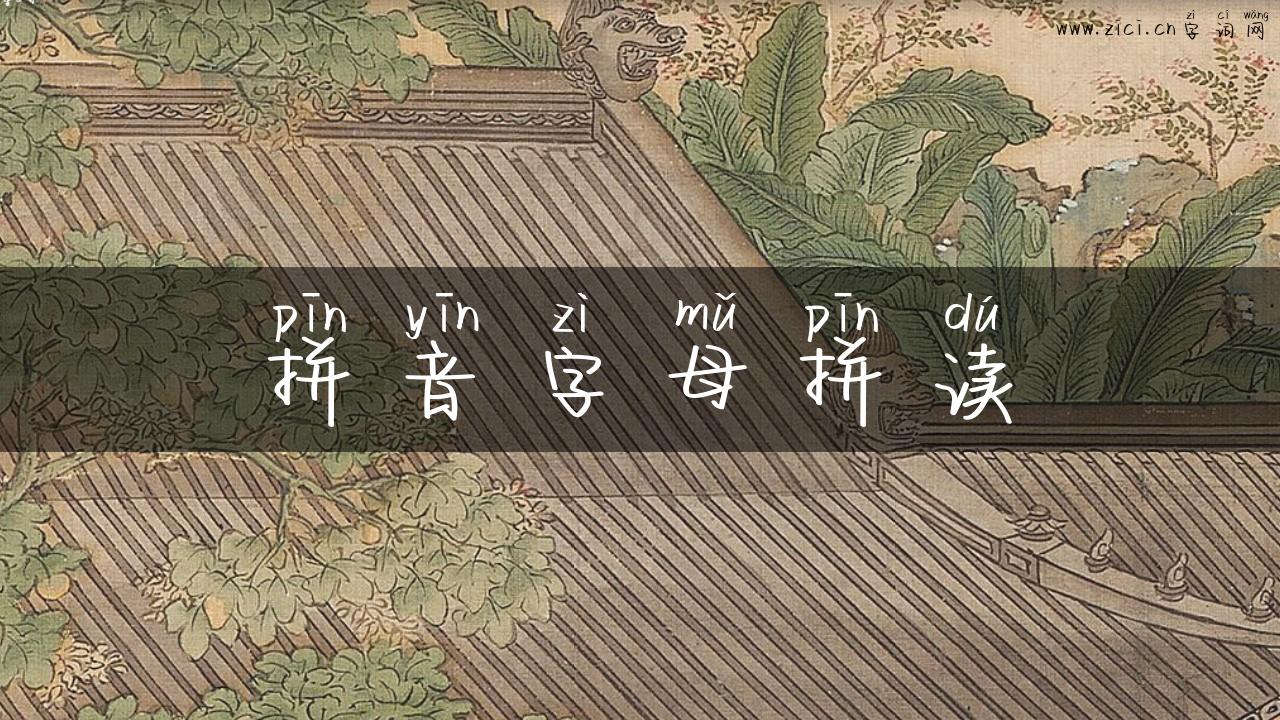 zì cí wǎng
www.zici.cn 字词网
pīn yīn zì mǔ pīn dú
拼音字母拼读